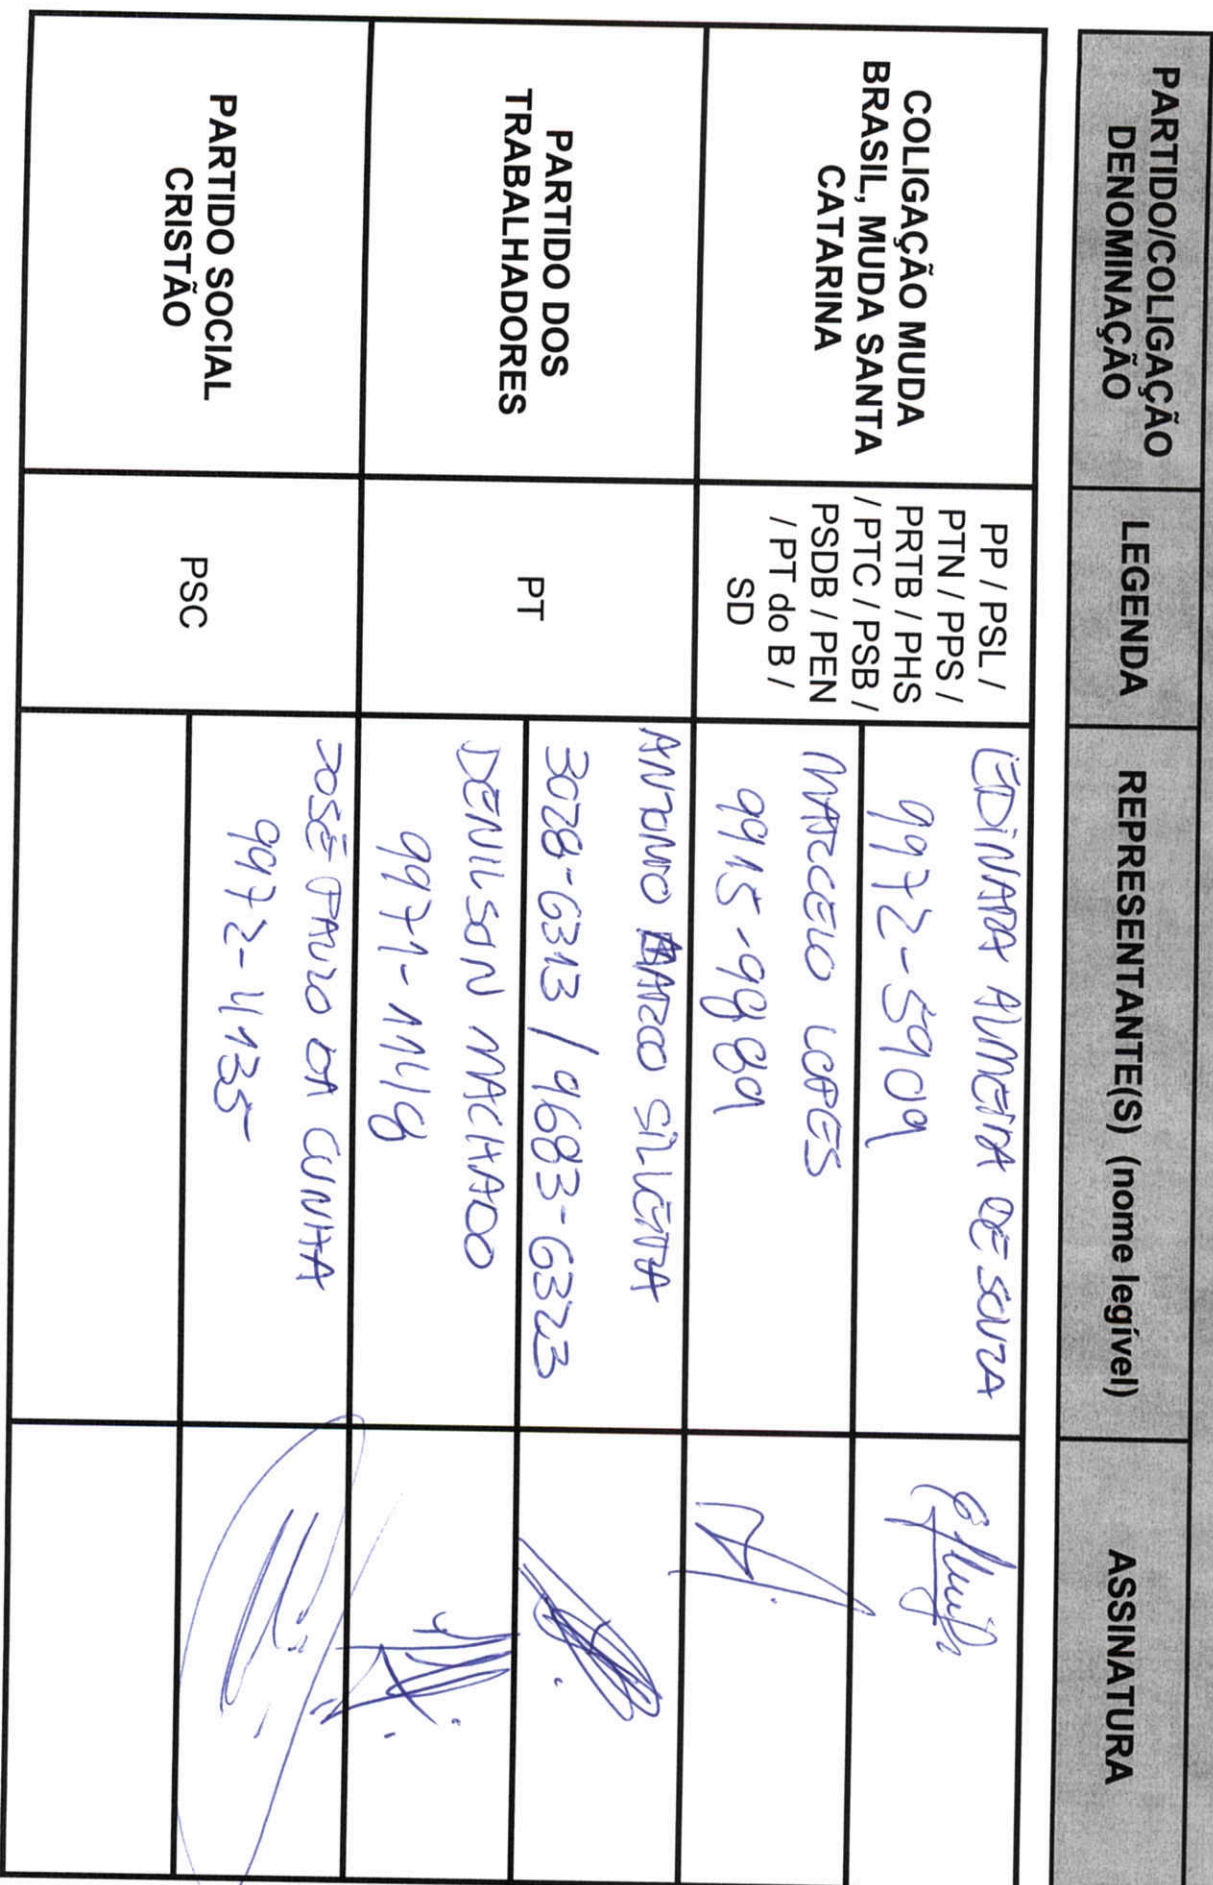 PARTIDO/COLIGAÇÃO
DENOMINAÇÃO
LEGENDA
REPRESENTANTE(S) (nome legível)
ASSINATURA
COLIGAÇÃO MUDA
BRASIL, MUDA SANTA
CATARINA
PP / PSL /
PTN / PPS /
PRTB / PHS
/ PTC / PSB /
PSDB / PEN
/ PT do B /
SD
EDINARA ALMEIDA DE SOUZA
9972-5909
MARCELO LOPES
9915-9989
PARTIDO DOS
TRABALHADORES
PT
ANTONIO MARCO SILVEIRA
3028-6313 / 9683-6323
DENILSON MACHADO
9971-1148
PARTIDO SOCIAL
CRISTÃO
PSC
JOSÉ PAULO DA CUNHA
9972-4135